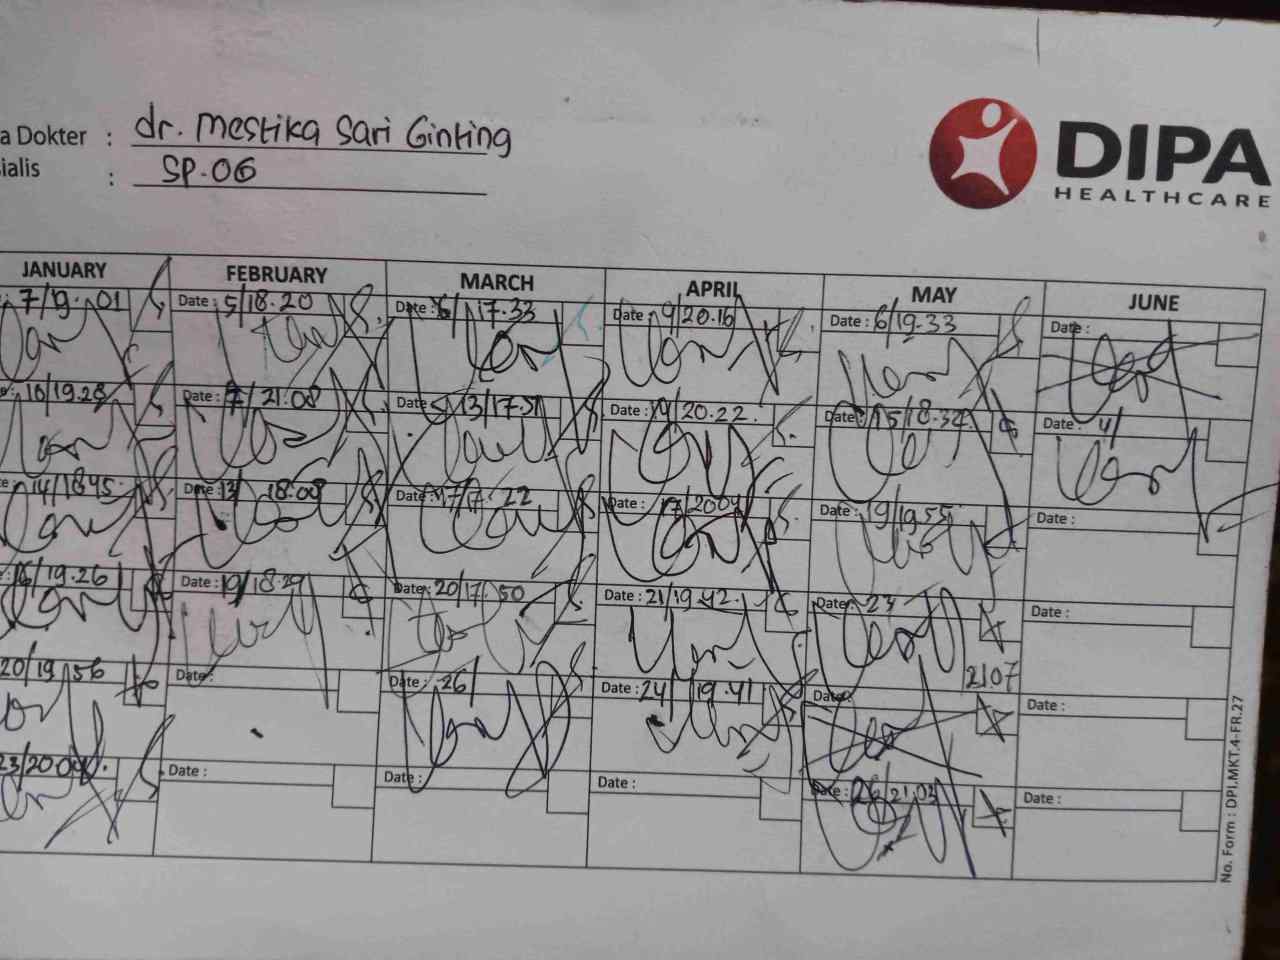 a Dokter : dr. Mestika Sari Ginting
ialis : SP.OG
DIPA
HEALTHCARE
JANUARY FEBRUARY MARCH APRIL MAY JUNE
7/19.01 Date : 5/18.20 Date : 6/17.33 Date : 9/20.16 Date : 6/19.33 Date :
16/19.23 Date : 7/21.08 Date : 13/17.51 Date : 14/20.22. Date : 15/18.32. Date : 4/
14/18.45 Date : 13/18.09 Date : 17/17.22 Date : 17/20.04 Date : 19/19.55 Date :
16/19.26 Date : 19/18.29 Date : 20/17.50 Date : 21/19.42. Date : 23 Date :
21.07
20/19.56 Date : Date : 26/ Date : 24/19.41 Date : Date :
23/20.04. Date : Date : Date : Date : 26/21.03 Date :
No. Form : DPI.MKT.4-FR.27